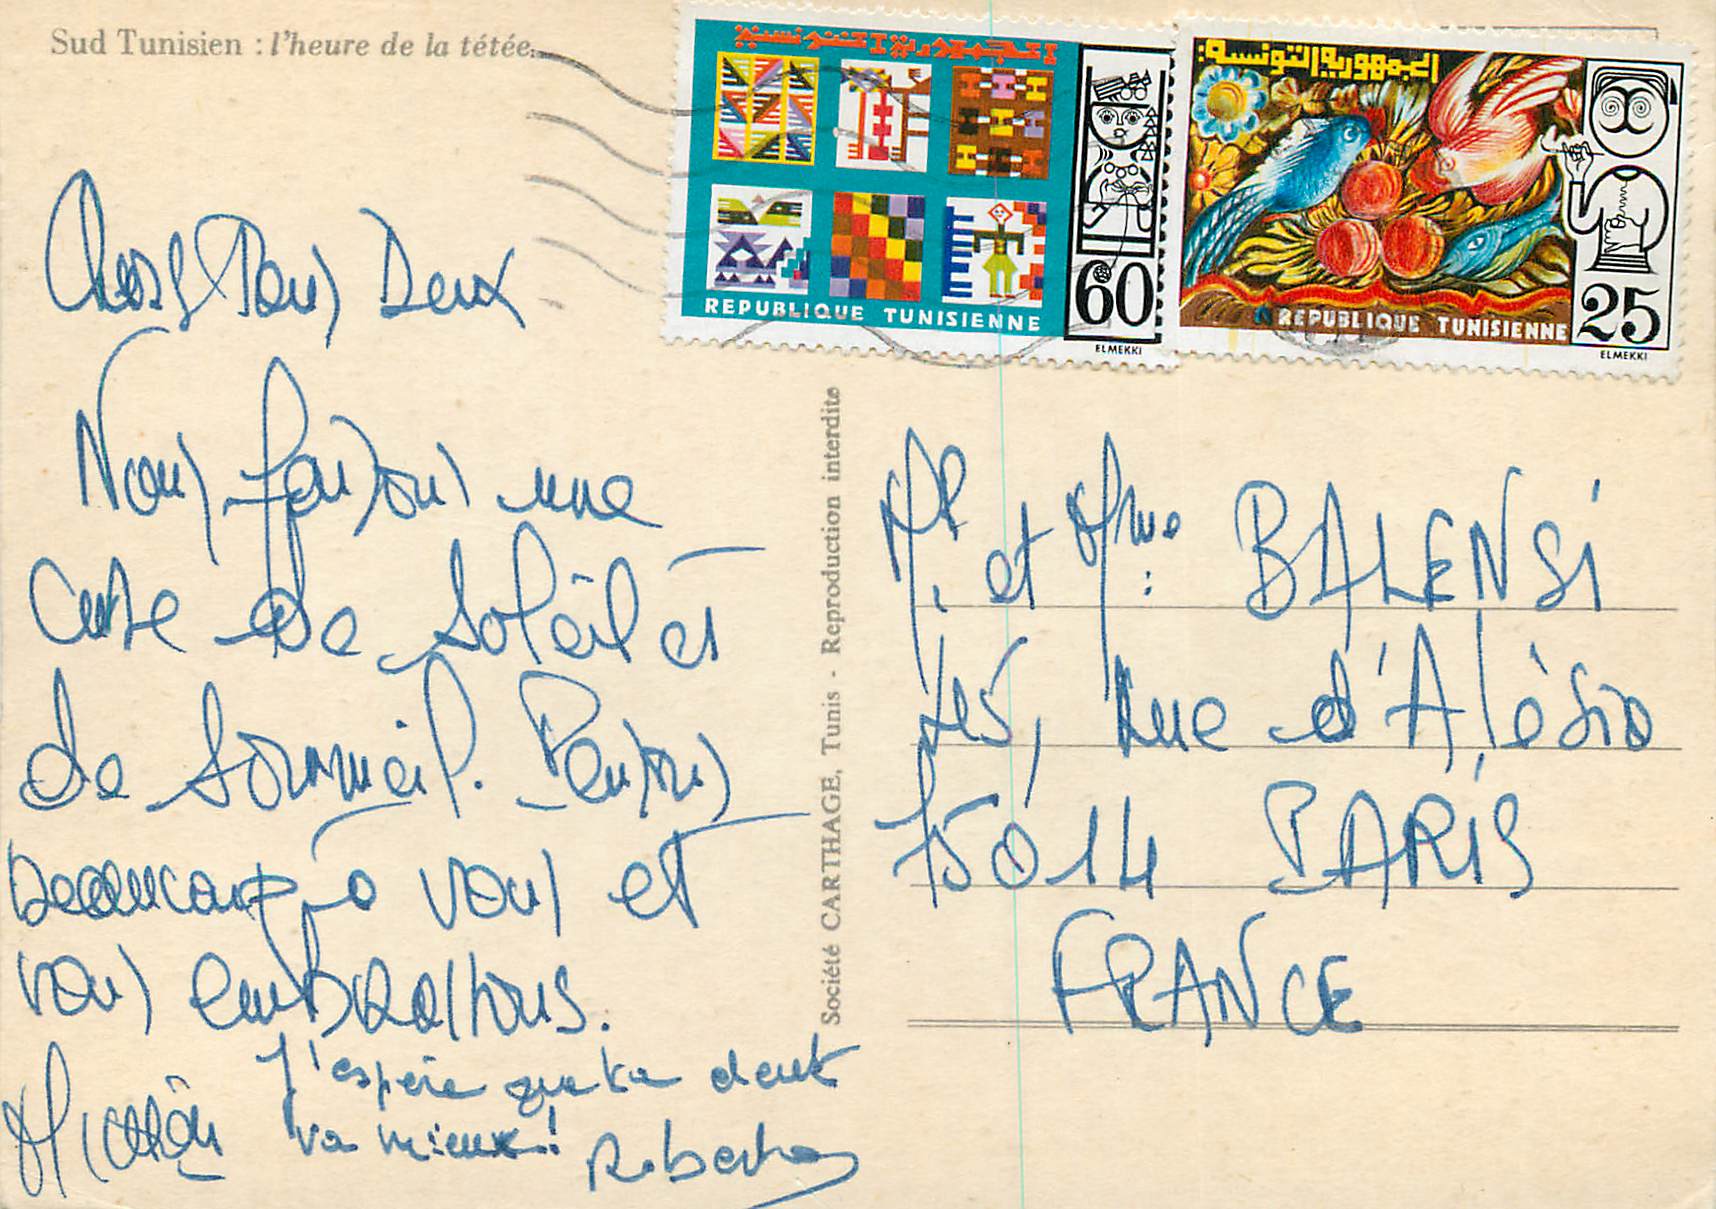 Sud Tunisien : l'heure de la tétée.
الجمهورية التونسية
REPUBLIQUE TUNISIENNE
60
ELMEKKI
الجمهورية التونسية
REPUBLIQUE TUNISIENNE
25
ELMEKKI
Chers Tous Deux
Nous faisons une
cure de Soleil et
de Sommeil. Pensons
beaucoup à vous et
vous embrassons.
J'espère que ta dent
va mieux!
Société CARTHAGE, Tunis - Reproduction interdite
Mr. et Mme: BALENSI
Rue d'Alésia
75014 PARIS
FRANCE